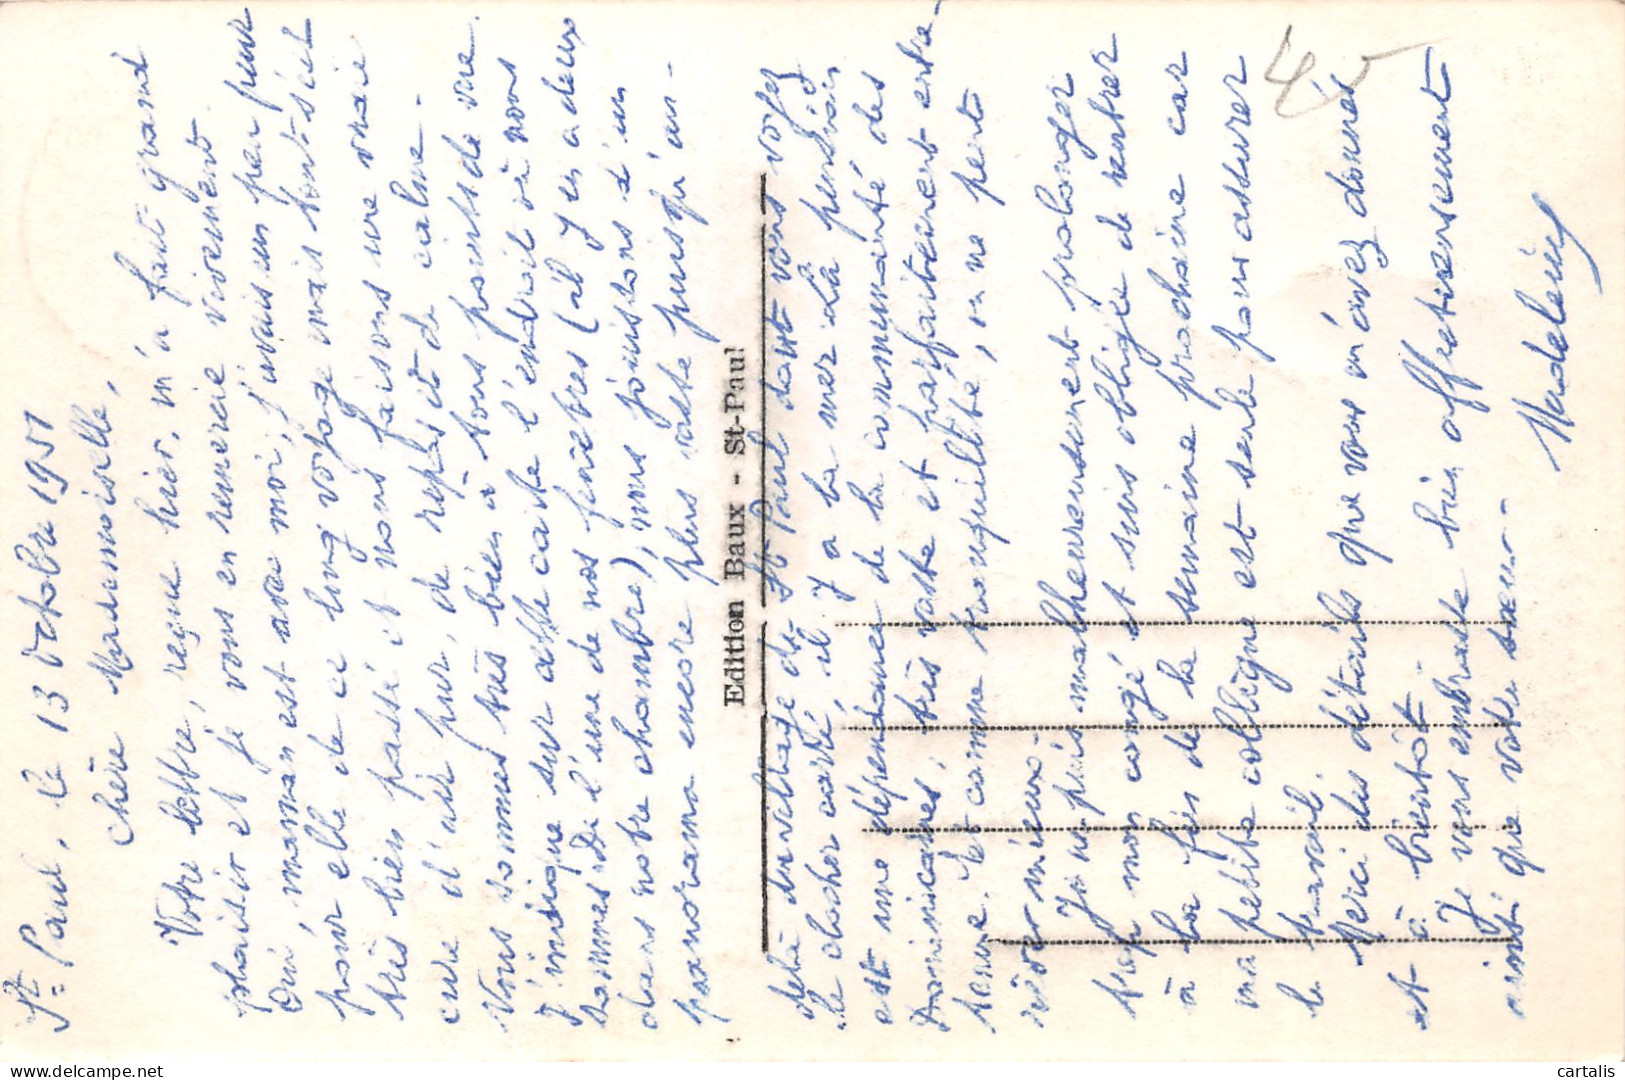 St Paul, le 13 Octobre 1951
Chère Mademoiselle,
Votre lettre, reçue hier, m'a fait grand
plaisir et je vous en remercie vivement.
Oui, maman est avec moi, j'avais un peu peur
pour elle de ce long voyage mais tout s'est
très bien passé et nous faisons une vraie
cure d'air pur, de repos et de calme -
Nous sommes très bien à tous points de vue.
J'indique sur cette carte l'endroit où nous
sommes. De l'une de nos fenêtres (il y en a deux
dans notre chambre), nous jouissons d'un
panorama encore plus vaste puisqu'au-
Edition Baux - St-Paul
delà du village de St Paul dont vous voyez
le clocher carré, il y a la mer. La pension
est une dépendance de la communauté des
Dominicaines, très vaste et parfaitement entre-
tenue. Et comme tranquillité, on ne peut
rêver mieux -
Je ne puis malheureusement prolonger
trop mon congé et suis obligée de rentrer
à la fin de la semaine prochaine car
ma petite collègue est seule pour assurer
le travail.
Merci des détails que vous m'avez donnés
et à bientôt
Je vous embrasse bien affectueusement
ainsi que votre sœur -
Madeleine
cartalis
delcampe.net